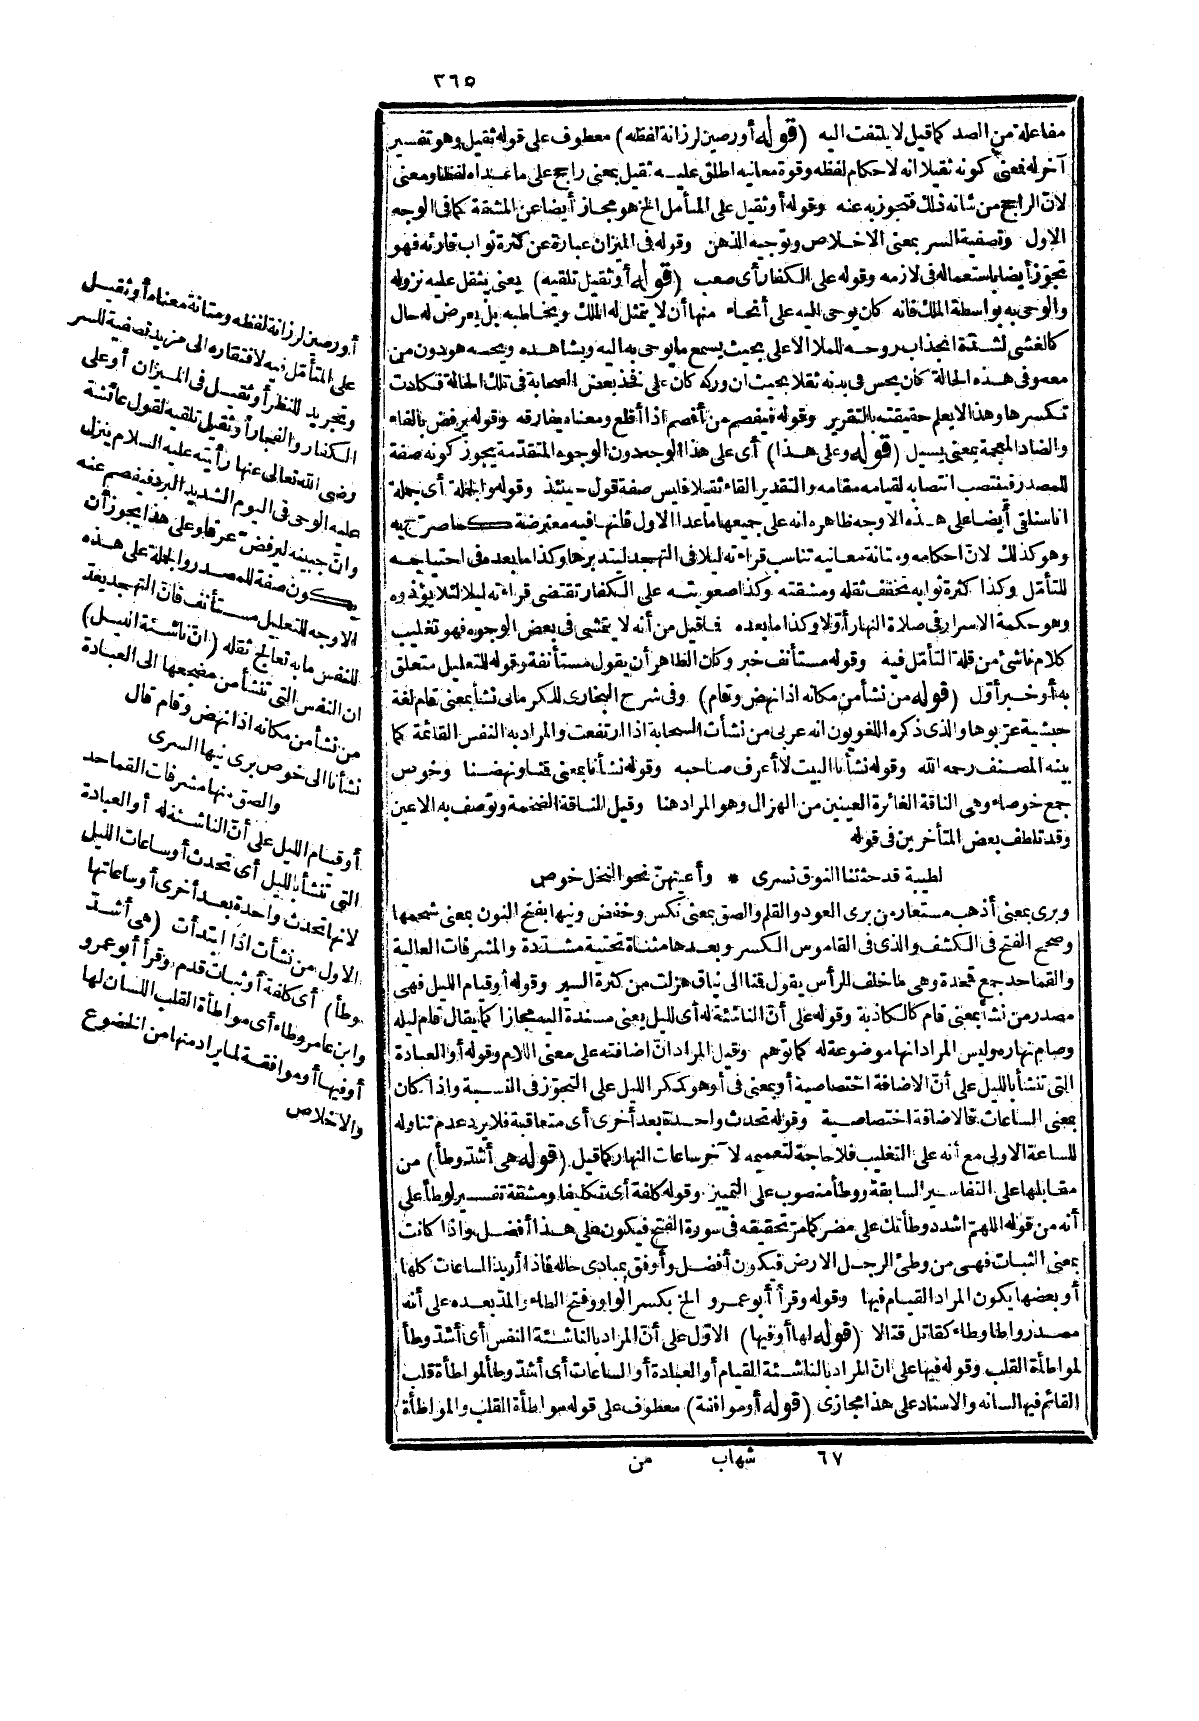 ٢٦٥
مفاعلة من الصد كما قيل لا يلتفت اليه (قوله أو رصين لرزانة لفظه) معطوف على قوله ثقيل وهو تفسير
آخر له فمعنى كونه ثقيلا انه لاحكام لفظه وقوة معانيه اطلق عليه ثقيل بمعنى راجح على ما عداه لفظا ومعنى
لانّ الراجح من شأنه ذلك فتجوز به عنه وقوله أو ثقيل على المتأمل الخ هو مجاز أيضا عن المشقة كما فى الوجه
الاول وتصفية السر بمعنى الاخلاص وتوجيه الذهن وقوله فى الميزان عبارة عن كثرة ثواب قارئه فهو
تجوّز أيضا باستعماله فى لازمه وقوله على الكفار أى صعب (قوله أو ثقيل تلقيه) يعنى يثقل عليه نزوله
والوحى به بواسطة الملك فانه كان يوحى اليه على أنحاء منها أن لا يتمثل له الملك ويخاطبه بل يعرض له حال
كالغشى لشدّة انجذاب روحه للملا الاعلى بحيث يسمع ما يوحى به اليه ويشاهده ويحسه هو دون من
معه وفى هذه الحالة كان يحس فى بدنه ثقلا بحيث ان وركه كان على فخذ بعض الصحابة فى تلك الحالة فكادت
تكسرها وهذا لا يعلم حقيقته بالتقرير وقوله فيفصم من أفصم اذا أقلع ومعناه يفارقه وقوله يرفض بالفاء
والضاد المعجمة بمعنى يسيل (قوله وعلى هذا) أى على هذا الوجه دون الوجوه المتقدمة يجوز كونه صفة
للمصدر فينتصب انتصابه لقيامه مقامه والتقدير القاء ثقيلا فليس صفة قول حينئذ وقوله والجملة أى جملة
انا سنلقى أيضا على هذه الاوجه ظاهره انه على جميعها ما عدا الاول فانها فيه معترضة كما صرّح به
وهو كذلك لانّ احكامه ومتانة معانيه تناسب قراءته ليلا فى التهجد لتدبرها وكذا ما بعده فى احتياجه
للتأمّل وكذا كثرة ثوابه تخفف ثقله ومشقته وكذا صعوبته على الكفار تقتضى قراءته ليلا لئلا يؤذوه
وهو حكمة الاسرار فى صلاة النهار أوّلا وكذا ما بعده فما قيل من أنه لا يتمشى فى بعض الوجوه فهو تغليب
كلام ناشئ من قلة التأمّل فيه وقوله مستأنف خبر وكان الظاهر أن يقول مستأنفة وقوله للتعليل متعلق
به أو خبر أوّل (قوله من نشأ من مكانه اذا نهض وقام) وفى شرح البخارى للكرمانى نشأ بمعنى قام لغة
حبشية عرّبوها والذى ذكره اللغويون انه عربى من نشأت السحابة اذا ارتفعت والمراد به النفس القائمة كما
بينه المصنف رحمه الله وقوله نشأنا البيت لا أعرف صاحبه وقوله نشأنا بمعنى قمنا ونهضنا وخوص
جمع خوصاء وهى الناقة الغائرة العينين من الهزال وهو المراد هنا وقيل الناقة الضخمة وتوصف به الاعين
وقد تلطف بعض المتأخرين فى قوله
لطيبة قد حثثنا النوق نسرى * وأعينهنّ نحو النخل خوص
وبرى بمعنى أذهب مستعار من برى العود والقلم والصق بمعنى نكس وخفض ونيها بفتح النون بمعنى شحمها
وصحح الفتح فى الكشف والذى فى القاموس الكسر وبعدها مثناة تحتية مشدّدة والمشرفات العالية
والقماحد جمع قمحدة وهى ما خلف الرأس يقول قمنا الى نياق هزلت من كثرة السير وقوله أو قيام الليل فهى
مصدر من نشأ بمعنى قام كالكاذبة وقوله على أنّ الناشئة له أى لليل يعنى مسندة اليه مجازا كما يقال قام ليله
وصام نهاره وليس المراد انها موضوعة له كما توهم وقيل المراد انّ اضافته على معنى اللام وقوله أو العبادة
التى تنشأ بالليل على أنّ الاضافة اختصاصية أو بمعنى فى أو هو كمكر الليل على التجوّز فى النسبة واذا كان
بمعنى الساعات فالاضافة اختصاصية وقوله تحدث واحدة بعد أخرى أى متعاقبة فلا يرد عدم تناوله
للساعة الاولى مع أنه على التغليب فلا حاجة لتعميمه لآخر ساعات النهار كما قيل (قوله هى أشدّ وطأ) من
مقابلها على التفاسير السابقة ووطأ منصوب على التمييز وقوله كلفة أى تكليفا ومشقة تفسير لوطأ على
أنه من قوله اللهمّ اشدد وطأتك على مضر كما مرّ تحقيقه فى سورة الفتح فيكون على هذا أفضل واذا كانت
بمعنى الثبات فهى من وطئ الرجل الارض فيكون أفضل وأوفق بمبادى حاله فاذا أريد الساعات كلها
أو بعضها يكون المراد القيام فيها وقوله وقرأ أبو عمرو الخ بكسر الواو وفتح الطاء والمدّ بعده على أنه
مصدر واطأ وطاء كقاتل قتالا (قوله لها أو فيها) الاوّل على أنّ المراد بالناشئة النفس أى أشدّ وطأ
لمواطأة القلب وقوله فيها على انّ المراد بالناشئة القيام أو العبادة أو الساعات أى أشدّ وطأ لمواطأة قلب
القائم فيها لسانه والاسناد على هذا مجازى (قوله أو موافقة) معطوف على قوله مواطأة القلب والمواطأة
٦٧ شهاب من
أو رصين لرزانة لفظه ومتانة معناه أو ثقيل
على المتأمّل فيه لافتقاره الى مزيد تصفية للسر
وتجريد للنظر أو ثقيل فى الميزان أو على
الكفار والفجار أو ثقيل تلقيه لقول عائشة
رضى الله تعالى عنها رأيته عليه السلام ينزل
عليه الوحى فى اليوم الشديد البرد فيفصم عنه
وانّ جبينه ليرفضّ عرقا وعلى هذا يجوز أن
يكون صفة للمصدر والجملة على هذه
الاوجه للتعليل مستأنف فانّ التهجد يعدّ
للنفس ما به تعالج ثقله (انّ ناشئة الليل)
ان النفس التى تنشأ من مضجعها الى العبادة
من نشأ من مكانه اذا نهض وقام قال
نشأنا الى خوص برى نيها السرى
والصق منها مشرفات القماحد
أو قيام الليل على أنّ الناشئة له أو العبادة
التى تنشأ بالليل أى تحدث أو ساعات الليل
لانها تحدث واحدة بعد أخرى أو ساعاتها
الاول من نشأت اذا ابتدأت (هى أشدّ
وطأ) أى كلفة أو ثبات قدم وقرأ أبو عمرو
وابن عامر وطاء أى مواطأة القلب اللسان لها
أو فيها أو موافقة لما يراد منها من الخضوع
والاخلاص